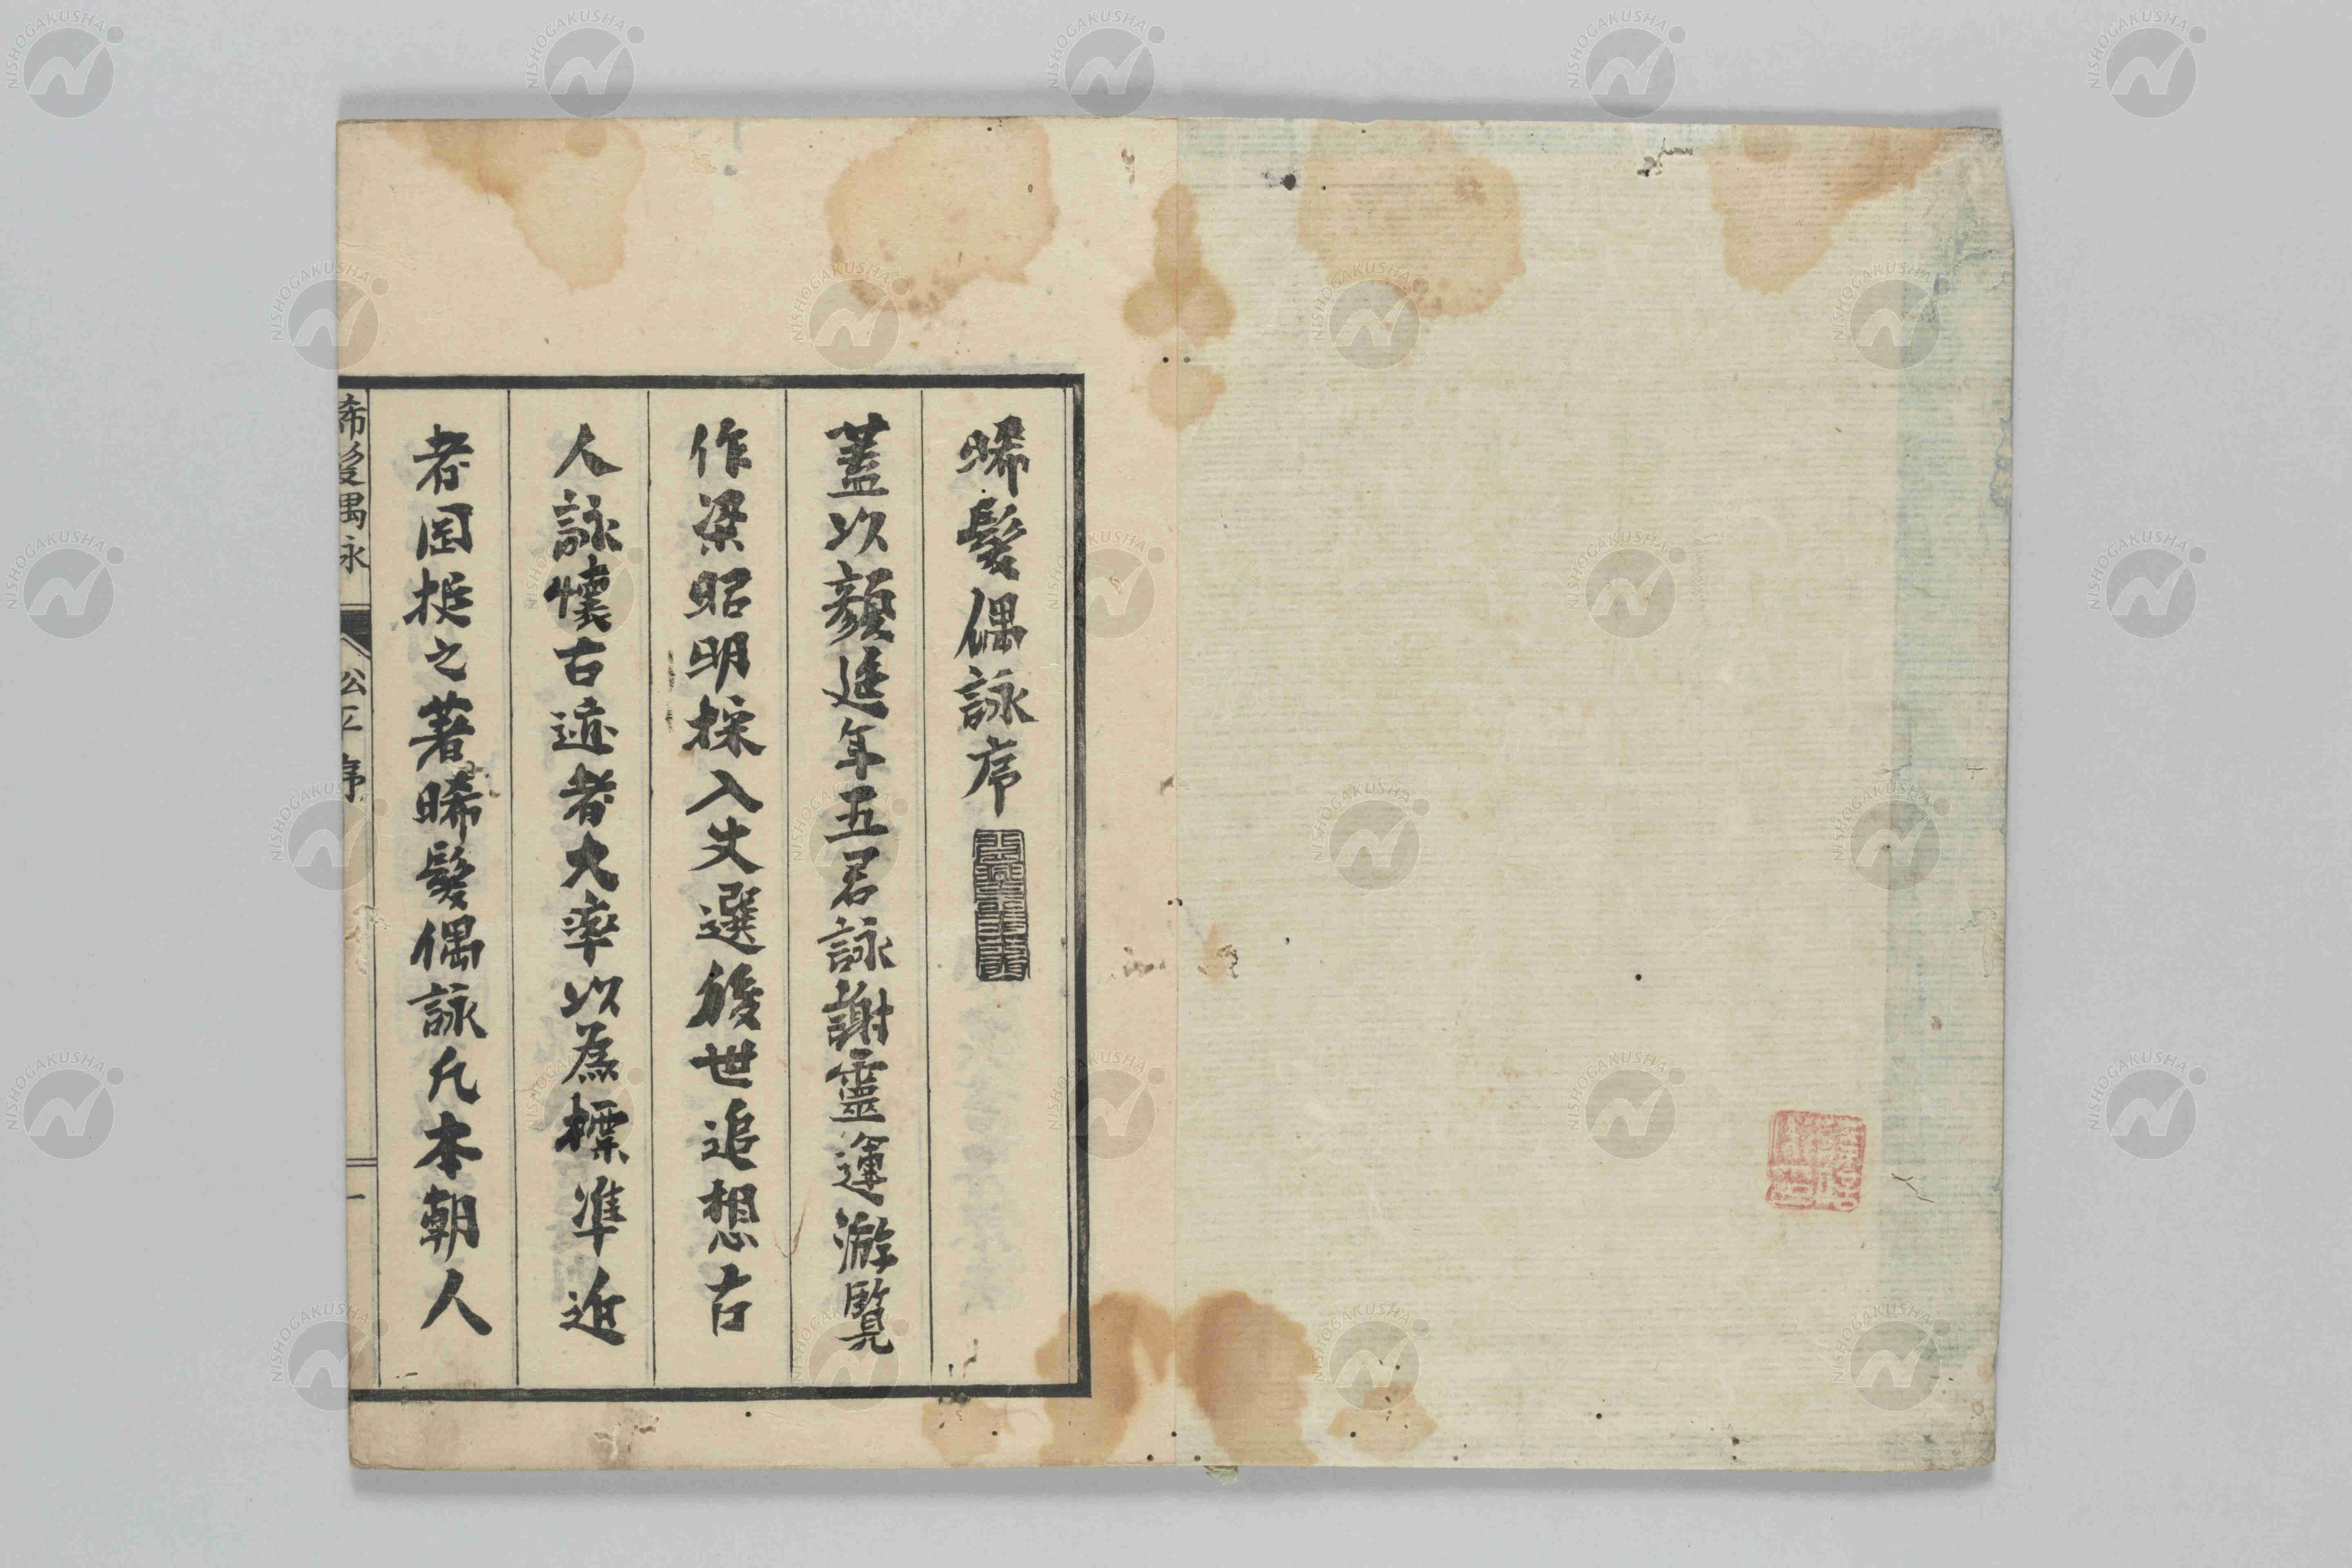 晞髮偶詠序
蓋以顏延年五君詠謝靈運游覽
作梁昭明採入文選後世追想古
人詠懷古迹者大率以為標準近
者岡挺之著晞髮偶詠凡本朝人
晞髮偶詠 序 一
NISHOGAKUSHA